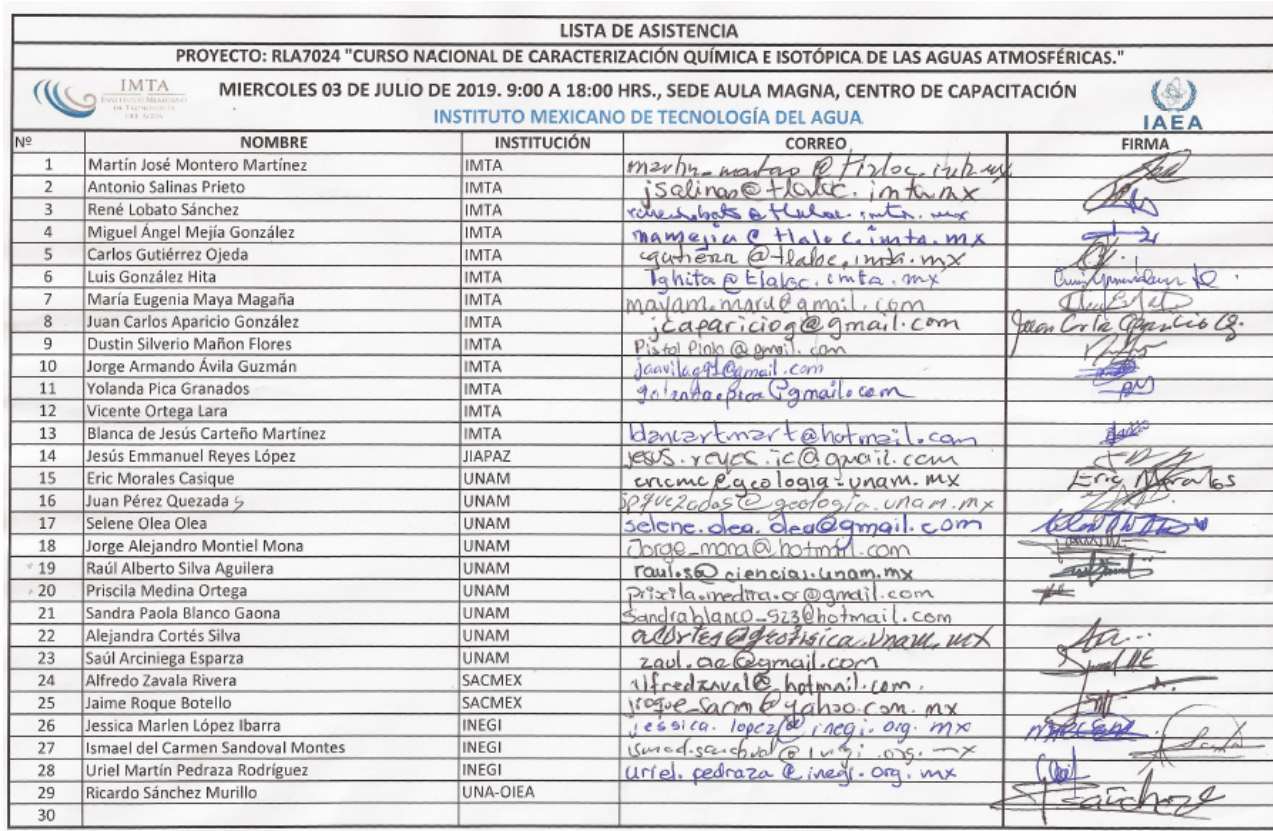 LISTA DE ASISTENCIA
PROYECTO: RLA7024 "CURSO NACIONAL DE CARACTERIZACIÓN QUÍMICA E ISOTÓPICA DE LAS AGUAS ATMOSFÉRICAS."
IMTA
INSTITUTO MEXICANO
DE TECNOLOGÍA
DEL AGUA
MIERCOLES 03 DE JULIO DE 2019. 9:00 A 18:00 HRS., SEDE AULA MAGNA, CENTRO DE CAPACITACIÓN
INSTITUTO MEXICANO DE TECNOLOGÍA DEL AGUA
IAEA
Nº NOMBRE INSTITUCIÓN CORREO FIRMA
1 Martín José Montero Martínez IMTA
2 Antonio Salinas Prieto IMTA jsalinas@tlaloc.imta.mx
3 René Lobato Sánchez IMTA
4 Miguel Ángel Mejía González IMTA mamejia@tlaloc.imta.mx
5 Carlos Gutiérrez Ojeda IMTA
6 Luis González Hita IMTA lghita@tlaloc.imta.mx
7 María Eugenia Maya Magaña IMTA mayam.maru@gmail.com
8 Juan Carlos Aparicio González IMTA jcapariciog@gmail.com Juan Carlos Aparicio G.
9 Dustin Silverio Mañon Flores IMTA
10 Jorge Armando Ávila Guzmán IMTA jaavilag91@gmail.com
11 Yolanda Pica Granados IMTA
12 Vicente Ortega Lara IMTA
13 Blanca de Jesús Carteño Martínez IMTA blancartmart@hotmail.com
14 Jesús Emmanuel Reyes López JIAPAZ jesus.reyes.ic@gmail.com
15 Eric Morales Casique UNAM ericmc@geologia.unam.mx Eric Morales
16 Juan Pérez Quezada S UNAM jpquezadas@geologia.unam.mx
17 Selene Olea Olea UNAM selene.olea.olea@gmail.com
18 Jorge Alejandro Montiel Mona UNAM Jorge_mona@hotmail.com
19 Raúl Alberto Silva Aguilera UNAM raul.s@ciencias.unam.mx
20 Priscila Medina Ortega UNAM prixila.medina.or@gmail.com
21 Sandra Paola Blanco Gaona UNAM Sandrablanco_923@hotmail.com
22 Alejandra Cortés Silva UNAM acortes@geofisica.unam.mx
23 Saúl Arciniega Esparza UNAM zaul.ae@gmail.com
24 Alfredo Zavala Rivera SACMEX alfredzaval@hotmail.com.
25 Jaime Roque Botello SACMEX
26 Jessica Marlen López Ibarra INEGI jessica.lopez@inegi.org.mx
27 Ismael del Carmen Sandoval Montes INEGI ismael.sandoval@inegi.org.mx
28 Uriel Martín Pedraza Rodríguez INEGI uriel.pedraza@inegi.org.mx
29 Ricardo Sánchez Murillo UNA-OIEA
30